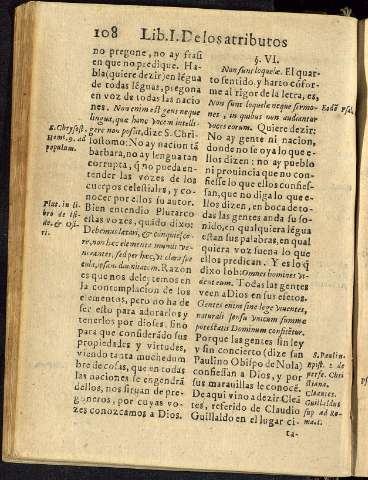 108 Lib. I. De los atributos
no pregone, no ay frasi
en que no predique. Ha-
bla (quiere dezir) en lẽgua
de todas lẽguas, pregona
en voz de todas las nacio
nes. Non enim est gens neque
lingua, quæ hanc vocem intelli-
gere non possit, dize S. Chri
sostomo: No ay nacion tã
barbara, no ay lengua tan
corrupta, q̃ no pueda en-
tender las vozes de los
cuerpos celestiales, y co-
nocer por ellos su autor.
Bien entendio Plutarco
estas vozes, quãdo dixo:
Debemus lætari, & conquiesce-
re, non hæc elementa mundi ve-
nerantes, sed per hæc, vt clara spe
cula, ipsam diuinitatem. Razon
es que nos deleytemos en
la contemplacion de los
elementos, pero no ha de
ser esto para adorarlos y
tenerlos por dioses, sino
para que considerado sus
propiedades y virtudes,
viendo tanta muchedum
bre de cosas, que en todas
las naciones se engendrã
dellos, nos siruan de pre-
goneros, por cuyas vo-
zes conozcamos a Dios.
S. Chrysost.
Hom. 9. ad
populum.
Plut. in li
bro de Isi
de, & Osi-
ri.
§. VI.
Non sunt loquelæ. El quar
to sentido, y harto cõfor-
me al rigor de la letra, es,
Non sunt loquelæ neque sermo-
nes, in quibus non audiantur
voces eorum. Quiere dezir:
No ay gente ni nacion,
donde no se oya lo que e-
llos dizen: no ay pueblo
ni prouincia que no con-
fiesse lo que ellos confies-
san, que no diga lo que e-
llos dizen, en boca de to-
das las gentes anda su so-
nido, en qualquiera lẽgua
estan sus palabras, en qual
quiera voz suena lo que
ellos predican. Y es lo q̃
dixo Iob: Omnes homines vi-
dent eum. Todas las gentes
veen a Dios en sus efetos.
Gentes enim sine lege viuentes,
naturali sensu vnicum summæ
potestatis Dominum confitẽtur.
Porque las gentes sin ley
y sin concierto (dize san
Paulino Obispo de Nola)
confiessan a Dios, y por
sus marauillas le conocẽ.
De aqui vino a dezir Cleã
tes, referido de Claudio
Guillaldo en el lugar ci-
ta-
Eadẽ Psal.
S. Paulin.
epist. 2. de
perse. Chri
stiana.
Cleantes.
Guillaldus
sup ad Ro-
man. 1.